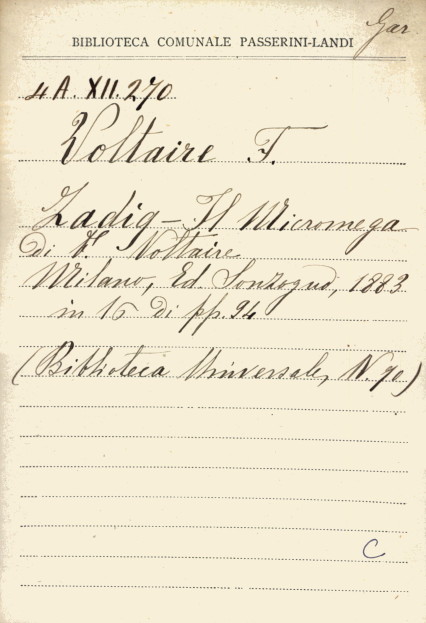 Gar
BIBLIOTECA COMUNALE PASSERINI-LANDI
4 A. XII. 270
Voltaire F.
Zadig - Il Micromega
di F. Voltaire
Milano, Ed. Sonzogno, 1883
in 16 di pp. 94
(Biblioteca Universale, N. 90)
C